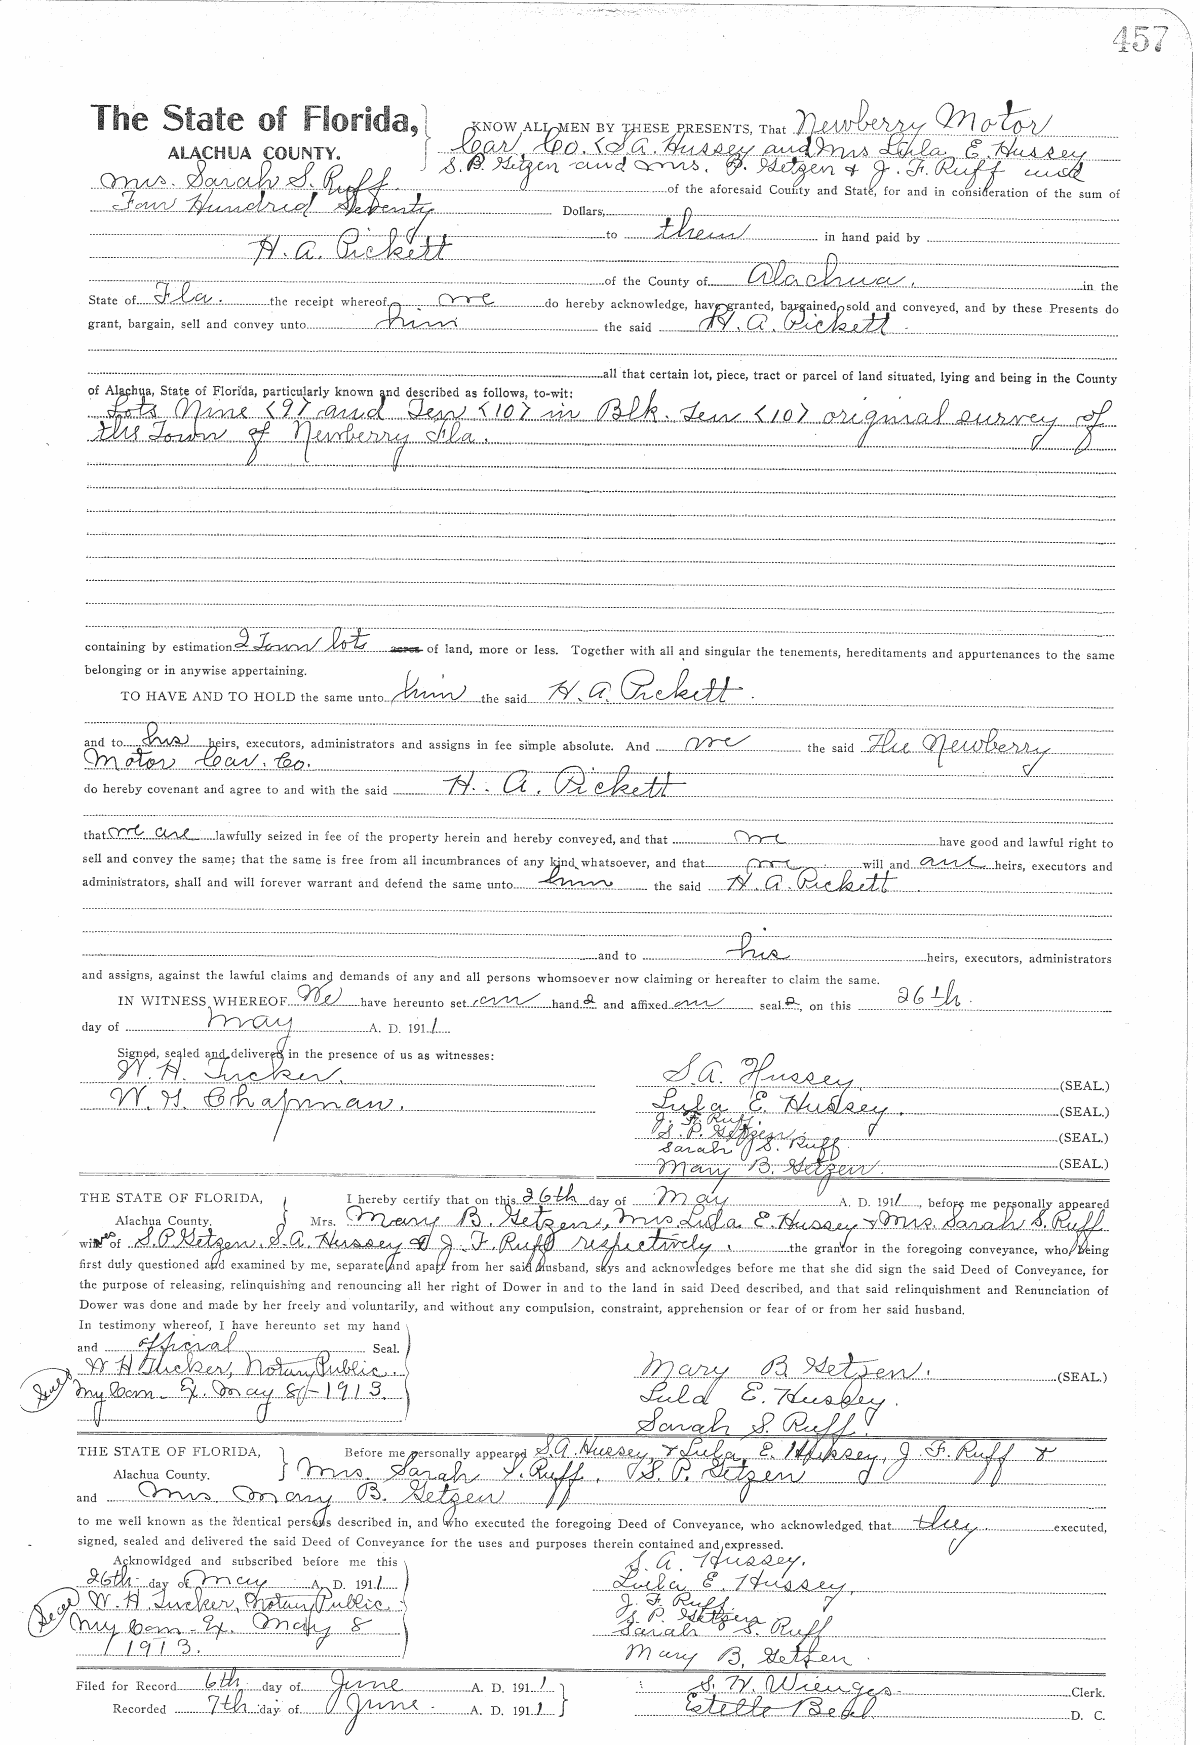 457
The State of Florida, KNOW ALL MEN BY THESE PRESENTS, That Newberry Motor
ALACHUA COUNTY. Car Co. <S. A. Hussey and Mrs Lula E. Hussey
S. P. Getzen and Mrs. B. Getzen & J. F. Ruff and
Mrs. Sarah S. Ruff. of the aforesaid County and State, for and in consideration of the sum of
Four Hundrid Seventy Dollars,
to them in hand paid by
H. A. Pickett
of the County of Alachua. in the
State of Fla. the receipt whereof we do hereby acknowledge, have granted, bargained, sold and conveyed, and by these Presents do
grant, bargain, sell and convey unto him the said H. A. Pickett.
all that certain lot, piece, tract or parcel of land situated, lying and being in the County
of Alachua, State of Florida, particularly known and described as follows, to-wit:
Lots Nine <9> and Ten <10> in Blk. Ten <10> original survey of
the Town of Newberry Fla.
containing by estimation 2 Town lots acres of land, more or less. Together with all and singular the tenements, hereditaments and appurtenances to the same
belonging or in anywise appertaining.
TO HAVE AND TO HOLD the same unto him the said H. A. Pickett.
and to his heirs, executors, administrators and assigns in fee simple absolute. And we the said The Newberry
Motor Car. Co.
do hereby covenant and agree to and with the said H. A. Pickett
that we are lawfully seized in fee of the property herein and hereby conveyed, and that we have good and lawful right to
sell and convey the same; that the same is free from all incumbrances of any kind whatsoever, and that we will and our heirs, executors and
administrators, shall and will forever warrant and defend the same unto him the said H. A. Pickett.
and to his heirs, executors, administrators
and assigns, against the lawful claims and demands of any and all persons whomsoever now claiming or hereafter to claim the same.
IN WITNESS WHEREOF We have hereunto set our hand s and affixed our seal s, on this 26th.
day of May A. D. 1911
Signed, sealed and delivered in the presence of us as witnesses:
W. H. Tucker. S. A. Hussey. (SEAL.)
W. G. Chapman. Lula E. Hussey. (SEAL.)
J. F. Ruff.
S. P. Getzen (SEAL.)
Sarah S. Ruff
Mary B. Getzen. (SEAL.)
THE STATE OF FLORIDA, I hereby certify that on this 26th day of May A. D. 1911, before me personally appeared
Alachua County. Mrs. Mary B. Getzen, Mrs Lula E. Hussey & Mrs. Sarah S. Ruff
wives of S. P. Getzen, S. A. Hussey & J. F. Ruff respectively. the grantor in the foregoing conveyance, who being
first duly questioned and examined by me, separate and apart from her said husband, says and acknowledges before me that she did sign the said Deed of Conveyance, for
the purpose of releasing, relinquishing and renouncing all her right of Dower in and to the land in said Deed described, and that said relinquishment and Renunciation of
Dower was done and made by her freely and voluntarily, and without any compulsion, constraint, apprehension or fear of or from her said husband.
In testimony whereof, I have hereunto set my hand
and official Seal.
W. H Tucker, Notary Public. Mary B Getzen. (SEAL.)
Seal My Com- Ex. May 8/-1913. Lula E. Hussey.
Sarah S. Ruff.
THE STATE OF FLORIDA, Before me personally appeared S. A. Hussey, & Lula E. Hussey, J. F. Ruff &
Alachua County. Mrs. Sarah S. Ruff. S. P. Getzen
and Mrs. Mary B. Getzen
to me well known as the identical persons described in, and who executed the foregoing Deed of Conveyance, who acknowledged that they. executed,
signed, sealed and delivered the said Deed of Conveyance for the uses and purposes therein contained and expressed.
Acknowldged and subscribed before me this S. A. Hussey.
26th day of May A. D. 1911 Lula E. Hussey,
Seal W. H. Tucker, Notary Public. J. F. Ruff
S. P. Getzen
My Com- Ex. May 8 Sarah S. Ruff
/1913. Mary B. Getzen.
Filed for Record 6th day of June A. D. 1911 S. H. Wienges. Clerk.
Recorded 7th day of June. A. D. 1911 Estelle Beal D. C.